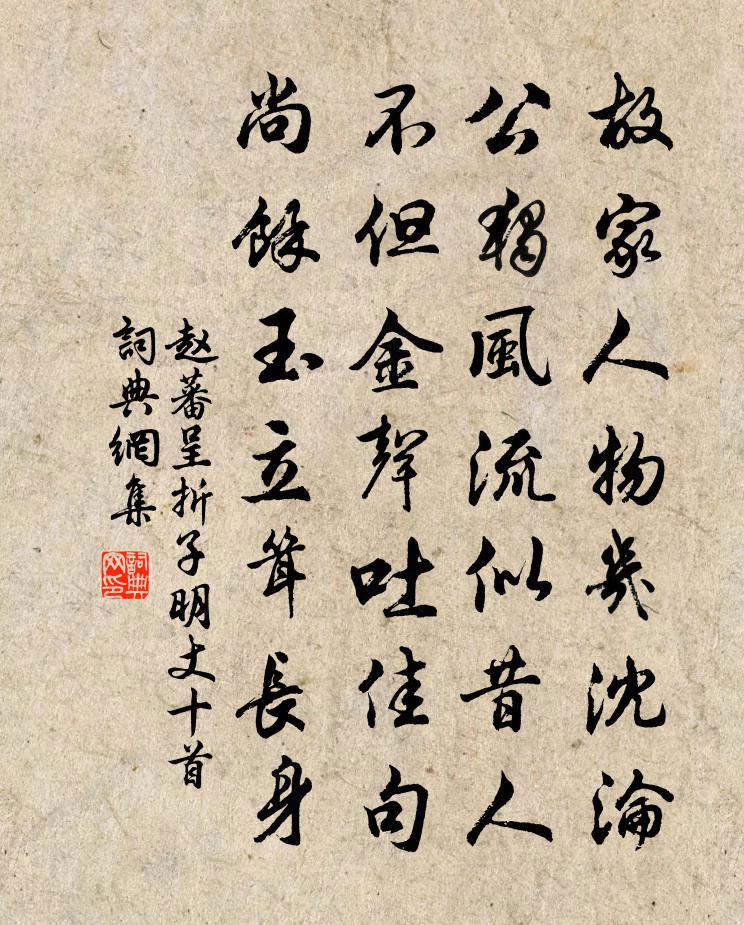 故家人物幾沈淪
公獨風流似昔人
不但金聲吐佳句
尚餘玉立聳長身
趙蕃呈折子明丈十首
詞典網集
詞典網印